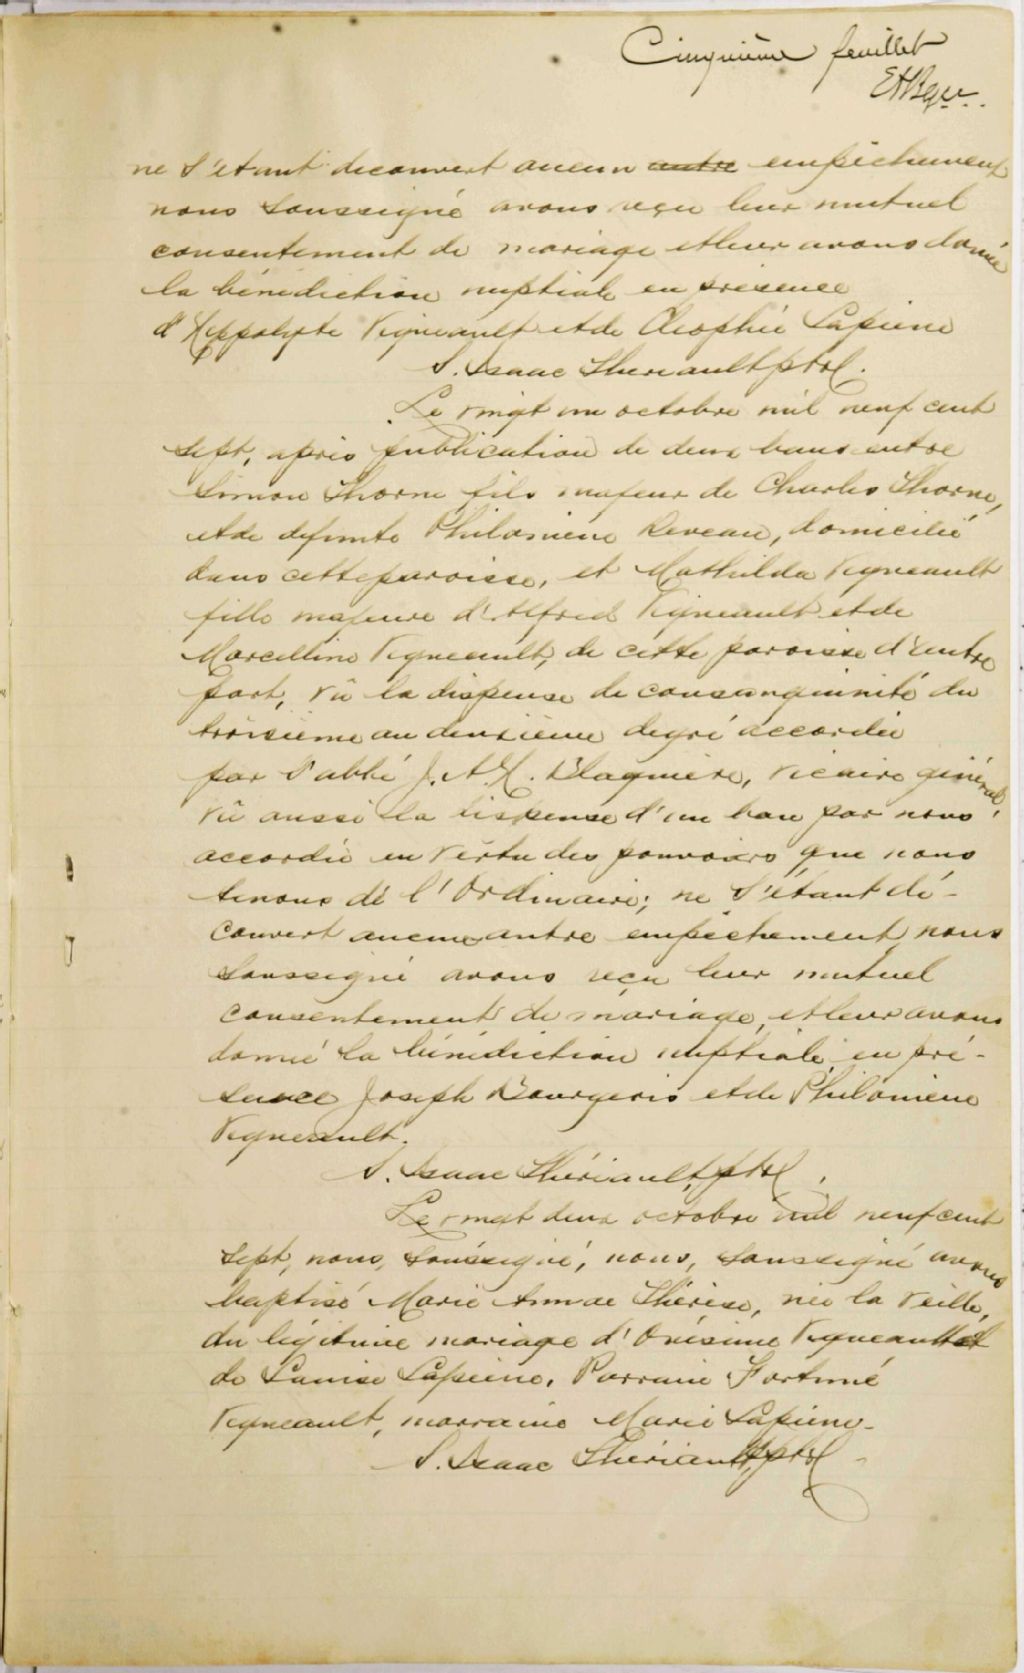 Cinquième feuillet
ne s'étant decouvert aucun autre empêchement
nous soussigné avons reçu leur mutuel
consentement de mariage et leur avons donné
la bénédiction nuptiale en présence
d'Hippolyte Vigneault et de Cléophée Lapierre
S. Isaac Thériault, ptre.
Le vingt un octobre mil neuf cent
sept, après publication de deux bans entre
Simon Thorne fils majeur de Charles Thorne,
et de defunte Philomène Reveau, domicilié
dans cette paroisse, et Mathilda Vigneault
fille majeure d'Alfred Vigneault et de
Marcelline Vigneault, de cette paroisse d'autre
part, vû la dispense de consanguinité du
troisième au deuxième degré accordée
par l'abbé J. A. Blaquière, vicaire général,
vû aussi la dispense d'un ban par nous
accordée en vertu des pouvoirs que nous
tenons de l'Ordinaire; ne s'étant dé-
couvert aucun autre empêchement, nous
soussigné avons reçu leur mutuel
consentement de mariage, et leur avons
donné la bénédiction nuptiale en pré-
sence Joseph Bourgeois et de Philomène
Vigneault.
S. Isaac Thériault, ptre.
Le vingt deux octobre mil neuf cent
sept, nous, soussigné, nous, soussigné avons
baptisé Marie Anna Thérèse, née la veille,
du légitime mariage d'Onésime Vigneault et
de Louise Lapierre. Parrain Fortuné
Vigneault, marraine Marie Lapierre.
S. Isaac Thériault, ptre